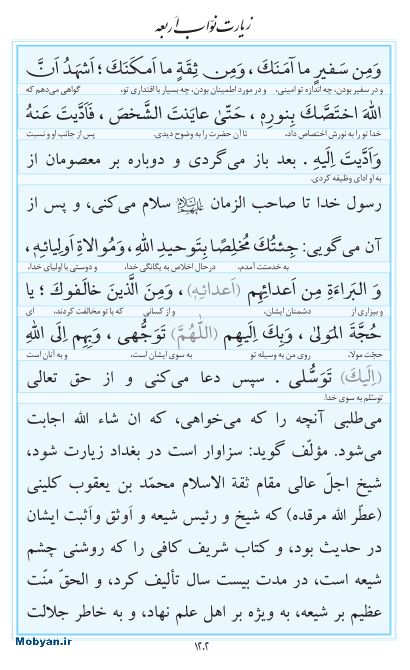 زیارت نوّاب اَربعه
وَمِن سَفیرٍ ما آمَنَکَ ، وَمِن ثِقَةٍ ما اَمکَنَکَ ؛ اَشهَدُ اَنَّ
و در سفیر بودن، چه اندازه تو امینی، و در مورد اطمینان بودن، چه بسیار با اقتداری تو، گواهی می‌دهم که
اللهَ اختَصَّکَ بِنورِهِ ، حَتّیٰ عایَنتَ الشَّخصَ ، فَاَدَّیتَ عَنهُ
خدا تو را به نورش اختصاص داد، تا آن حضرت را به وضوح دیدی. پس از جانب او و نسبت
وَاَدَّیتَ اِلَیهِ . بعد باز می‌گردی و دوباره بر معصومان از
به او ادای وظیفه کردی.
رسول خدا تا صاحب الزمان علیهم‌السلام سلام می‌کنی، و پس از
آن می‌گویی: جِئتُکَ مُخلِصًا بِتَوحیدِ اللهِ ، وَمُوالاةِ اَولِیائِهِ ،
به خدمتت آمدم، در حال اخلاص به یگانگی خدا، و دوستی با اولیای خدا،
وَ البَراءَةِ مِن اَعدائِهِم (اَعدائِهِ) ، وَمِنَ الَّذینَ خالَفوکَ ؛ یا
و بیزاری از دشمنان ایشان، و از کسانی که با تو مخالفت کردند، ای
حُجَّةَ المَولیٰ ، وَبِکَ اِلَیهِم (اللّٰهُمَّ) تَوَجُّهی ، وَبِهِم اِلَی اللهِ
حجّت مولا، روی من به وسیله تو به سوی ایشان است، و به آنان است
(اِلَیکَ) تَوَسُّلی . سپس دعا می‌کنی و از حق تعالی
توسّلم به سوی خدا.
می‌طلبی آنچه را که می‌خواهی، که ان شاء الله اجابت
می‌شود. مؤلّف گوید: سزاوار است در بغداد زیارت شود،
شیخ اجلّ عالی مقام ثقة الاسلام محمّد بن یعقوب کلینی
(عطّر الله مرقده) که شیخ و رئیس شیعه و اوثق واَثبت ایشان
در حدیث بود، و کتاب شریف کافی را که روشنی چشم
شیعه است، در مدت بیست سال تألیف کرد، و الحقّ منّت
عظیم بر شیعه، به ویژه بر اهل علم نهاد، و به خاطر جلالت
۱۲۰۲
Mobyan.ir